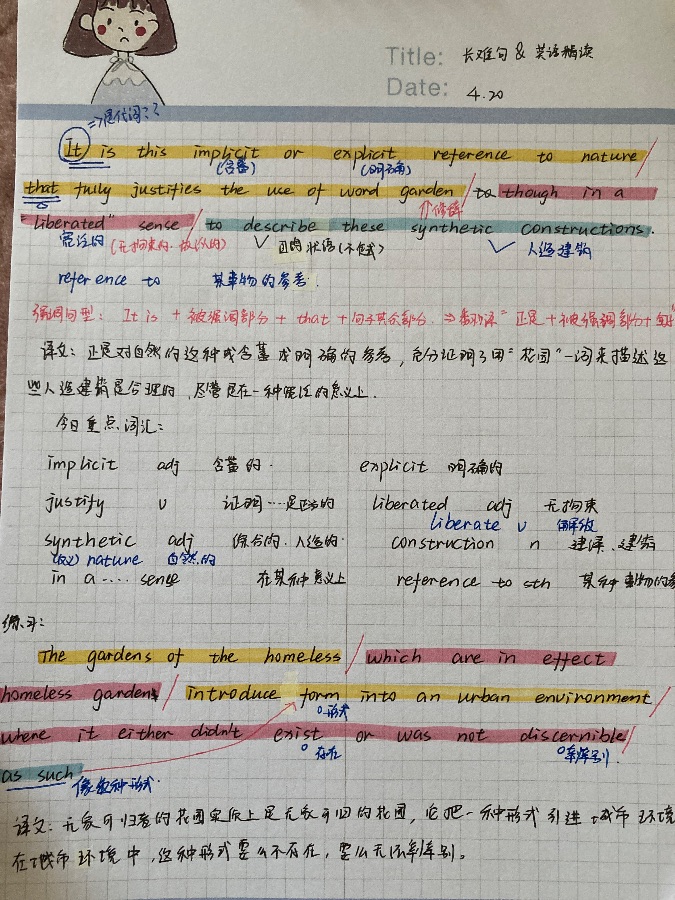 Title: 长难句 & 英语精读
Date: 4.20
⇒是代词??
It is this implicit or explicit reference to nature /
(含蓄) (明确)
that fully justifies the use of word garden / to though in a
↑修辞
"liberated" sense / to describe these synthetic constructions.
宽泛的 (无拘束的. 放纵的) ✓ 目的状语(不定式) ✓ 人造建筑
reference to 某事物的参考.
强调句型: It is + 被强调部分 + that + 句子其余部分. ⇒ 翻译 "正是+被强调部分+
译文: 正是对自然的这种或含蓄或明确的参考, 充分证明了用"花园"一词来描述这
些人造建筑是合理的, 尽管是在一种宽泛的意义上.
今日重点词汇:
implicit adj 含蓄的. explicit 明确的
justify v 证明....是正当的 liberated adj 无拘束
liberate v 解放
synthetic adj 综合的. 人造的. construction n 建译、建筑
(反义) nature 自然的
in a .... sense 在某种意义上 reference to sth 某种事物的参
练习:
The gardens of the homeless / which are in effect
homeless gardens / introduce form into an urban environment /
形式
where it either didn't exist or was not discernible /
存在 辨别.
as such, 像这种形式.
译文: 无家可归者的花园实际上是无家可归的花园, 它把一种形式引进城市环境
在城市环境中, 这种形式要么不存在, 要么无法辨别。